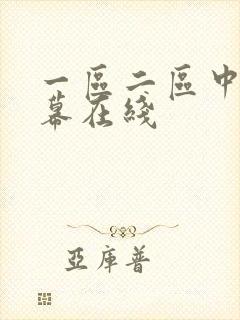 一區二區中
幕在綫
亞庫普